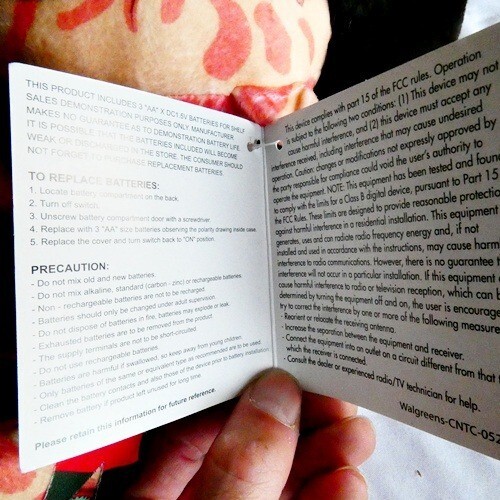 THIS PRODUCT INCLUDES 3 "AA" X DC1.5V BATTERIES FOR SHELF
SALES DEMONSTRATION PURPOSES ONLY. MANUFACTURER
MAKES NO GUARANTEE AS TO DEMONSTRATION BATTERY LIFE.
IT IS POSSIBLE THAT THE BATTERIES INCLUDED WILL BECOME
WEAK OR IN THE STORE. THE CONSUMER SHOULD
NOT FORGET REPLACEMENT BATTERIES.
TO REPLACE BATTERIES:
1. Locate battery compartment on the back.
2. Turn off switch.
3. Unscrew battery compartment door with a screwdriver.
4. Replace with 3 "AA" size batteries observing the polarity drawing inside case.
5. Replace the cover and turn switch back to "ON" position.
PRECAUTION:
- Do not mix old and new batteries.
- Do not mix alkaline, standard (carbon - zinc) or rechargeable batteries.
- Non - rechargeable batteries are not to be recharged.
- Batteries should only be changed under adult supervision.
- Do not dispose of batteries in fire, batteries may explode or leak.
- Exhausted batteries are to be removed from the product.
- The supply terminals are not to be short-circuited.
- Do not use rechargeable batteries.
- Batteries are harmful if swallowed, so keep away from young children.
- Only batteries of the same or equivalent type as recommended are to be used.
- Clean the battery contacts and also those of the device prior to battery installation.
- Remove battery if product left unused for long time.
Please retain this information for future reference.
This device complies with part 15 of the FCC rules. Operation
is subject to the following two conditions: (1) This device may not
cause harmful interference, and (2) this device must accept any
interference received, including interference that may cause undesired
operation. Caution: changes or modifications not expressly approved by
the party responsible for compliance could void the user's authority to
operate the equipment. NOTE: This equipment has been tested and found
to comply with the limits for a Class B digital device, pursuant to Part 15
the FCC Rules. These limits are designed to provide reasonable protection
against harmful interference in a residential installation. This equipment
generates, uses and can radiate radio frequency energy and, if not
installed and used in accordance with the instructions, may cause harm
interference to radio communications. However, there is no guarantee t
interference will not occur in a particular installation. If this equipment
cause harmful interference to radio or television reception, which can b
determined by turning the equipment off and on, the user is encourage
try to correct the interference by one or more of the following measures
- Reorient or relocate the receiving antenna.
- Increase the separation between the equipment and receiver.
- Connect the equipment into an outlet on a circuit different from that t
which the receiver is connected.
- Consult the dealer or experienced radio/TV technician for help.
Walgreens-CNTC-052